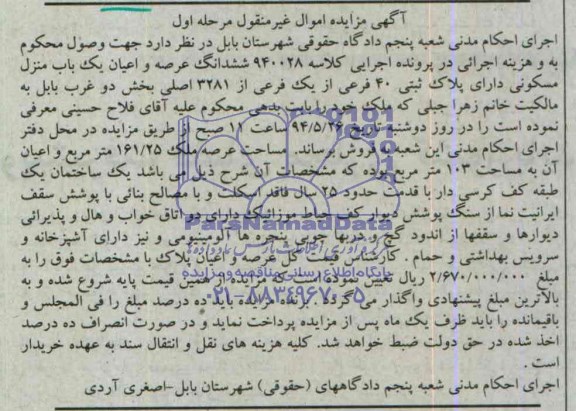 آگهی مزایده اموال غیرمنقول مرحله اول
اجرای احکام مدنی شعبه پنجم دادگاه حقوقی شهرستان بابل در نظر دارد جهت وصول محکوم
به و هزینه اجرائی در پرونده اجرایی کلاسه ۹۴۰۰۲۸ ششدانگ عرصه و اعیان یک باب منزل
مسکونی دارای پلاک ثبتی ۴۰ فرعی از یک فرعی از ۳۲۸۱ اصلی بخش دو غرب بابل به
مالکیت خانم زهرا جبلی که ملک خود را بابت بدهی محکوم علیه آقای فلاح حسینی معرفی
نموده است را در روز دوشنبه تاریخ ۹۴/۵/۲۶ ساعت ۱۱ صبح از طریق مزایده در محل دفتر
اجرای احکام مدنی این شعبه به فروش برساند. مساحت عرصه ملک ۱۶۱/۲۵ متر مربع و اعیان
آن به مساحت ۱۰۳ متر مربع بوده که مشخصات آن شرح ذیل می باشد یک ساختمان یک
طبقه کف کرسی دار با قدمت حدود ۲۵ سال فاقد اسکلت و با مصالح بنائی با پوشش سقف
ایرانیت نما از سنگ پوشش دیوار کف حیاط موزائیک دارای دو اتاق خواب و هال و پذیرائی
دیوارها و سقفها از اندود گچ و دربها چوبی پنجره ها آلومینیومی و نیز دارای آشپزخانه و
سرویس بهداشتی و حمام . کارشناس قیمت کل عرصه و اعیان پلاک با مشخصات فوق را به
مبلغ ۲/۶۷۰/۰۰۰/۰۰۰ ریال تعیین نموده است که مزایده از همین قیمت پایه شروع شده و به
بالاترین مبلغ پیشنهادی واگذار می گردد. برنده مزایده باید ده درصد مبلغ را فی المجلس و
باقیمانده را باید ظرف یک ماه پس از مزایده پرداخت نماید و در صورت انصراف ده درصد
اخذ شده در حق دولت ضبط خواهد شد. کلیه هزینه های نقل و انتقال سند به عهده خریدار
است .
اجرای احکام مدنی شعبه پنجم دادگاههای (حقوقی) شهرستان بابل-اصغری آردی
ParsNamadData
پایگاه اطلاع رسانی مناقصه و مزایده
۰۲۱-۸۸۳۴۹۶۷۰-۵